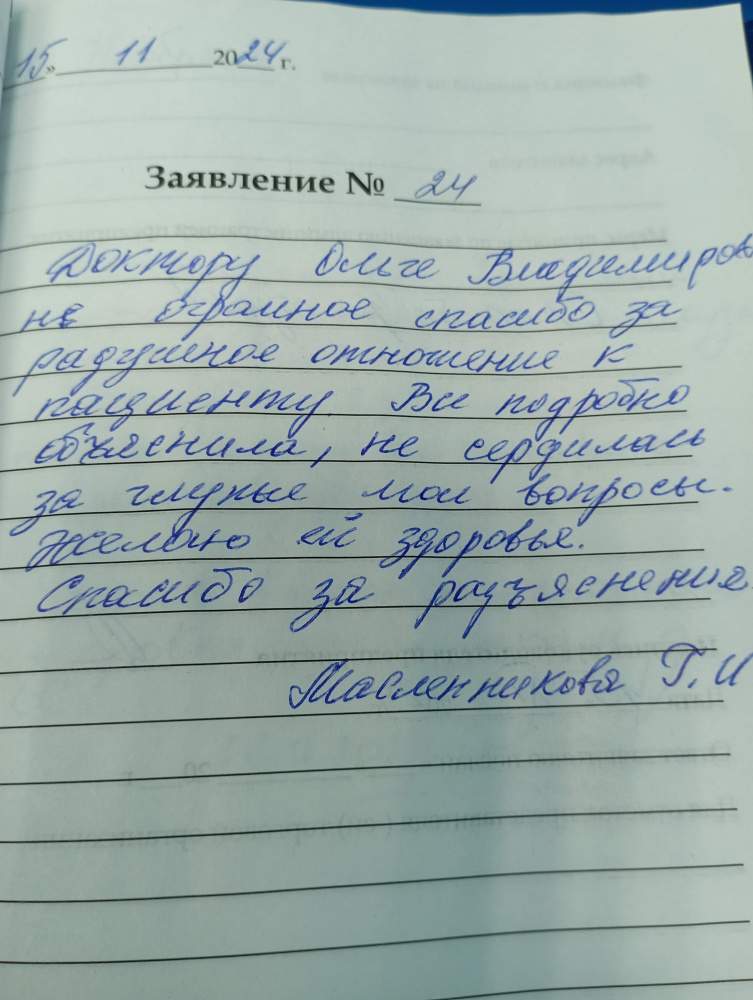 15» 11 2024 г.
Заявление № 24
Доктору Ольге Владимиров
не огромное спасибо за
радушное отношение к
пациенту. Все подробно
объяснила, не сердилась
за глупые мои вопросы.
Желаю ей здоровья.
Спасибо за разъяснения
Масленникова Г.И